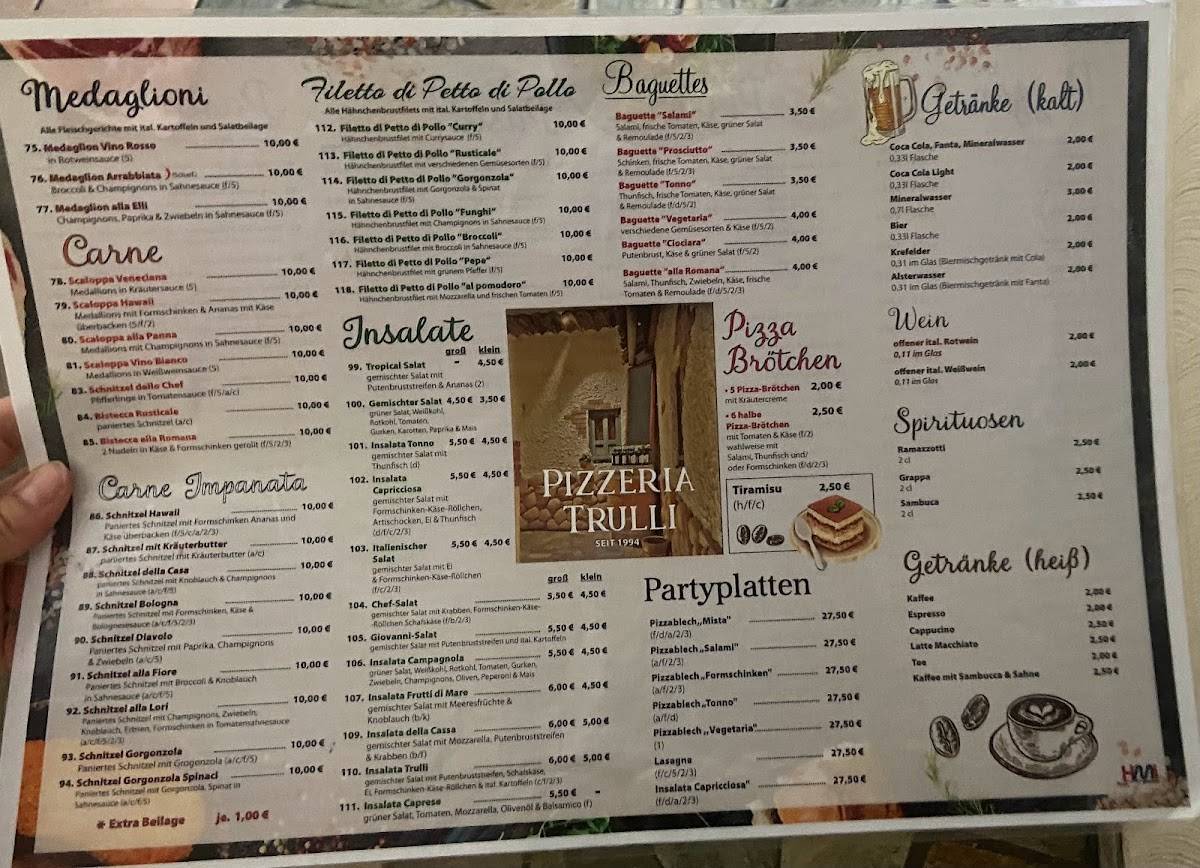 Medaglioni
Alle Fleischgerichte mit ital. Kartoffeln und Salatbeilage
75. Medaglion Vino Rosso 10,00 €
in Rotweinsauce (5)
76. Medaglion Arrabbiata 10,00 €
Broccoli & Champignons in Sahnesauce (f/5)
77. Medaglion alla Elli 10,00 €
Champignons, Paprika & Zwiebeln in Sahnesauce (f/5)
Carne
78. Scaloppa Veneciana 10,00 €
Medallions in Kräutersauce (5)
79. Scaloppa Hawaii 10,00 €
Medallions mit Formschinken & Ananas mit Käse
überbacken (5/f/2)
80. Scaloppa alla Panna 10,00 €
Medallions mit Champignons in Sahnesauce (f/5)
81. Scaloppa Vino Bianco 10,00 €
Medallions in Weißweinsauce (5)
83. Schnitzel dello Chef 10,00 €
Pfifferlinge in Tomatensauce (f/5/a/c)
84. Bistecca Rusticale 10,00 €
paniertes Schnitzel (a/c)
85. Bistecca alla Romana 10,00 €
2 Nudeln in Käse & Formschinken gerollt (f/5/2/3)
Carne Impanata
86. Schnitzel Hawaii 10,00 €
Paniertes Schnitzel mit Formschinken Ananas und
Käse überbacken (f/5/c/a/2/3)
87. Schnitzel mit Kräuterbutter 10,00 €
paniertes Schnitzel mit Kräuterbutter (a/c)
88. Schnitzel della Casa 10,00 €
paniertes Schnitzel mit Knoblauch & Champignons
in Sahnesauce (a/c/f/5)
89. Schnitzel Bologna 10,00 €
Paniertes Schnitzel mit Formschinken, Käse &
Bolognesesauce (a/c/f/5/2/3)
90. Schnitzel Diavolo 10,00 €
Paniertes Schnitzel mit Paprika, Champignons
& Zwiebeln (a/c/5)
91. Schnitzel alla Fiore 10,00 €
Paniertes Schnitzel mit Broccoli & Knoblauch
in Sahnesauce (a/c/f/5)
92. Schnitzel alla Lori 10,00 €
Paniertes Schnitzel mit Champignons, Zwiebeln,
Knoblauch, Erbsen, Formschinken in Tomatensahnesauce
(a/c/f/5/2/3)
93. Schnitzel Gorgonzola 10,00 €
Paniertes Schnitzel mit Grogonzola (a/c/f/5)
94. Schnitzel Gorgonzola Spinaci 10,00 €
Paniertes Schnitzel mit Gorgonzola, Spinat in
Sahnesauce (a/c/f/5)
* Extra Beilage je. 1,00 €
Filetto di Petto di Pollo
Alle Hähnchenbrustfilets mit ital. Kartoffeln und Salatbeilage
112. Filetto di Petto di Pollo "Curry" 10,00 €
Hähnchenbrustfilet mit Currysauce (f/5)
113. Filetto di Petto di Pollo "Rusticale" 10,00 €
Hähnchenbrustfilet mit verschiedenen Gemüsesorten (f/5)
114. Filetto di Petto di Pollo "Gorgonzola" 10,00 €
Hähnchenbrustfilet mit Gorgonzola & Spinat
115. Filetto di Petto di Pollo "Funghi" 10,00 €
Hähnchenbrustfilet mit Champignons in Sahnesauce (f/5)
116. Filetto di Petto di Pollo "Broccoli" 10,00 €
Hähnchenbrustfilet mit Broccoli in Sahnesauce (f/5)
117. Filetto di Petto di Pollo "Pepe" 10,00 €
Hähnchenbrustfilet mit grünem Pfeffer (f/5)
118. Filetto di Petto di Pollo "al pomodoro" 10,00 €
Hähnchenbrustfilet mit Mozzarella und frischen Tomaten (f/5)
Insalate
groß klein
99. Tropical Salat - 4,50 €
gemischter Salat mit
Putenbruststreifen & Ananas (2)
100. Gemischter Salat 4,50 € 3,50 €
grüner Salat, Weißkohl,
Rotkohl, Tomaten,
Gurken, Karotten, Paprika & Mais
101. Insalata Tonno 5,50 € 4,50 €
gemischter Salat mit
Thunfisch (d)
102. Insalata 5,50 € 4,50 €
Capricciosa
gemischter Salat mit
Formschinken-Käse-Röllchen,
Artischocken, Ei & Thunfisch
(d/f/c/2/3)
103. Italienischer 5,50 € 4,50 €
Salat
gemischter Salat mit Ei
& Formschinken-Käse-Röllchen
(f/c/2/3)
groß klein
104. Chef-Salat 5,50 € 4,50 €
gemischter Salat mit Krabben, Formschinken-Käse-
Röllchen Schafskäse (f/b/2/3)
105. Giovanni-Salat 5,50 € 4,50 €
gemischter Salat mit Putenbruststreifen und ital. Kartoffeln
106. Insalata Campagnola 5,50 € 4,50 €
grüner Salat, Weißkohl, Rotkohl, Tomaten, Gurken,
Zwiebeln, Champignons, Oliven, Peperoni & Mais
107. Insalata Frutti di Mare 6,00 € 4,50 €
gemischter Salat mit Meeresfrüchte &
Knoblauch (b/k)
109. Insalata della Cassa 6,00 € 5,00 €
gemischter Salat mit Mozzarella, Putenbruststreifen
& Krabben (b/f)
110. Insalata Trulli 6,00 € 5,00 €
gemischter Salat mit Putenbruststreifen, Schafskäse,
Ei, Formschinken-Käse-Röllchen & ital. Kartoffeln (c/f/2/3)
111. Insalata Caprese 5,50 € -
grüner Salat, Tomaten, Mozzarella, Olivenöl & Balsamico (f)
Baguettes
Baguette "Salami" 3,50 €
Salami, frische Tomaten, Käse, grüner Salat
& Remoulade (f/5/2/3)
Baguette "Prosciutto" 3,50 €
Schinken, frische Tomaten, Käse, grüner Salat
& Remoulade (f/5/2/3)
Baguette "Tonno" 3,50 €
Thunfisch, frische Tomaten, Käse, grüner Salat
& Remoulade (f/d/5/2)
Baguette "Vegetaria" 4,00 €
verschiedene Gemüsesorten & Käse (f/5/2)
Baguette "Ciociara" 4,00 €
Putenbrust, Käse & grüner Salat (f/5/2)
Baguette "alla Romana" 4,00 €
Salami, Thunfisch, Zwiebeln, Käse, frische
Tomaten & Remoulade (f/d/5/2/3)
PIZZERIA
TRULLI
SEIT 1994
Pizza
Brötchen
• 5 Pizza-Brötchen 2,00 €
mit Kräutercreme
• 6 halbe 2,50 €
Pizza-Brötchen
mit Tomaten & Käse (f/2)
wahlweise mit
Salami, Thunfisch und/
oder Formschinken (f/d/2/3)
Tiramisu 2,50 €
(h/f/c)
Partyplatten
Pizzablech„Mista" 27,50 €
(f/d/a/2/3)
Pizzablech„Salami" 27,50 €
(a/f/2/3)
Pizzablech„Formschinken" 27,50 €
(a/f/2/3)
Pizzablech„Tonno" 27,50 €
(a/f/d)
Pizzablech„Vegetaria" 27,50 €
(1)
Lasagna 27,50 €
(f/c/5/2/3)
Insalata Capricciosa" 27,50 €
(f/d/a/2/3)
Getränke (kalt)
Coca Cola, Fanta, Mineralwasser 2,00 €
0,33l Flasche
Coca Cola Light 2,00 €
0,33l Flasche
Mineralwasser 3,00 €
0,7l Flasche
Bier 2,00 €
0,33l Flasche
Krefelder 2,00 €
0,31 im Glas (Biermischgetränk mit Cola)
Alsterwasser 2,00 €
0,31 im Glas (Biermischgetränk mit Fanta)
Wein
offener ital. Rotwein 2,00 €
0,11 im Glas
offener ital. Weißwein 2,00 €
0,11 im Glas
Spirituosen
Ramazzotti 2,50 €
2 cl
Grappa 2,50 €
2 cl
Sambuca 2,50 €
2 cl
Getränke (heiß)
Kaffee 2,00 €
Espresso 2,00 €
Cappucino 2,50 €
Latte Macchiato 2,50 €
Tee 2,00 €
Kaffee mit Sambucca & Sahne 2,50 €